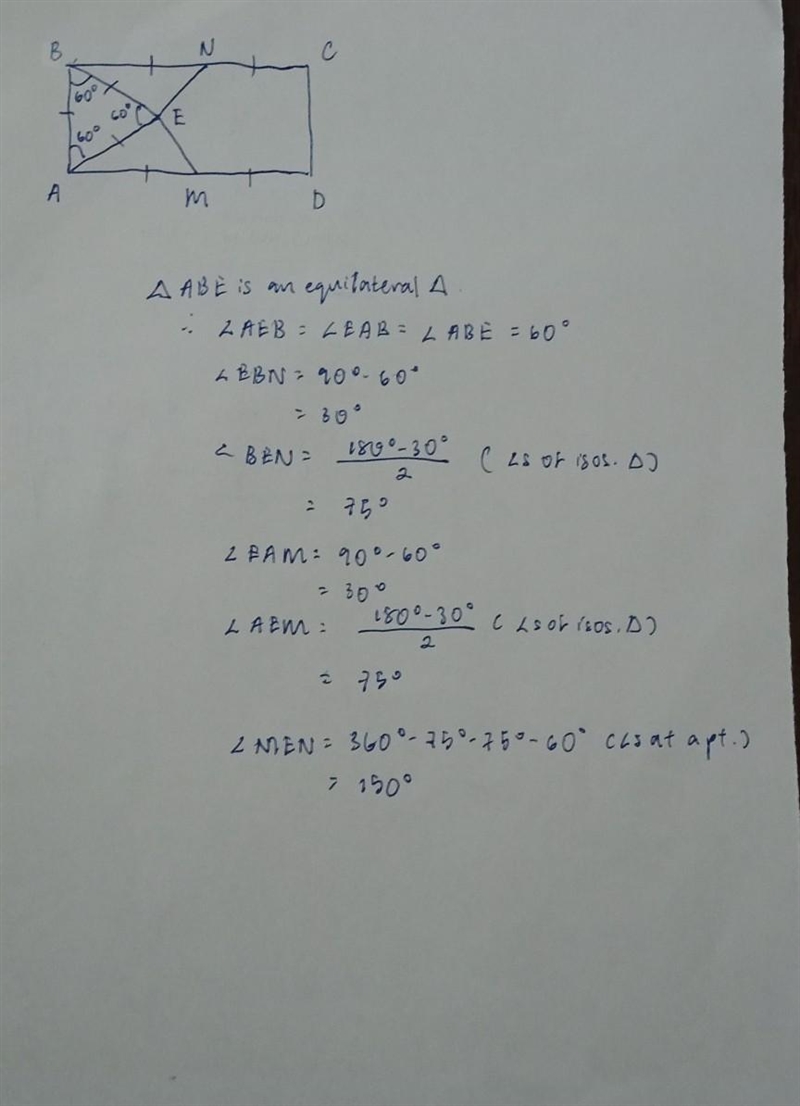 B N C
60°
60° E
60°
A M D
△ ABE is an equilateral △.
∴ ∠AEB = ∠EAB = ∠ABE = 60°
∠EBN = 90° - 60°
= 30°
∠BEN = 180° - 30° / 2 (∠s of isos. △)
= 75°
∠EAM = 90° - 60°
= 30°
∠AEM = 180° - 30° / 2 (∠s of isos. △)
= 75°
∠MEN = 360° - 75° - 75° - 60° (∠s at a pt.)
= 150°